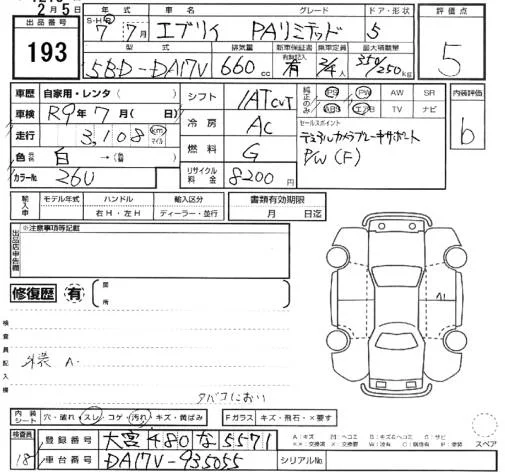 2月5日
出品番号 193
S・H・R 年式 車名 グレード ドア・形状 評価点
7年7月 エブリイ PAリミテッド 5
型式 排気量 新車保証書 有無記入 乗車定員 最大積載量 5
5BD-DA17V 660cc 有 2/4人 350/250kg
車歴 自家用・レンタ( ) シフト 1AT CVT 純正のみ PS PW AW SR 内装評価
車検 R9年7月( ) ABS エアB TV ナビ
冷房 AC セールスポイント b
走行 3,108 km マイル デュアルカメラブレーキサポート
燃料 G P/W(F)
色 白 →(
カラーNo 26U リサイクル料金 8200円
輸入車 モデル年式 ハンドル 輸入区分 書類有効期限
右H・左H ディーラー・並行 月 日迄
出品店申告欄 ※注意事項等記載
修復歴 有 箇所
検査員記入欄 A1
タバコにおい
内装シート 穴・破れ・スレ・コゲ・汚れ・キズ・黄ばみ Fガラス キズ・飛石・×要す
検査員 18 登録番号 大宮480な5571 スペア
車台番号 DA17V-935055 シリアルNo